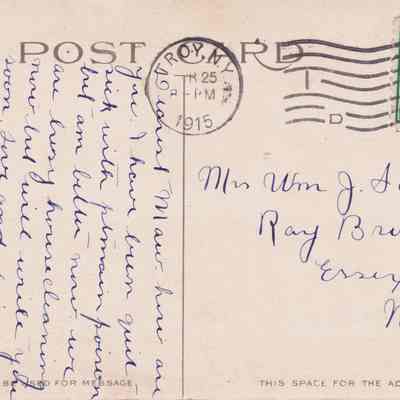 POST CARD
TROY, N.Y.
25
PM
1915
Dearest Maw, how are
You. I have been quit
sick with ptomain poison
but am better now. we
are busy housecleaning
now but will write you
soon.
Mrs Wm J.
Ray
Essex
D
BE USED FOR MESSAGE
THIS SPACE FOR THE AD